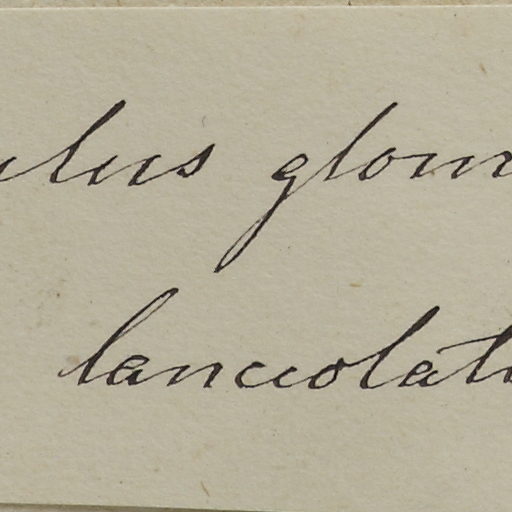 ulus glom
lanceolat